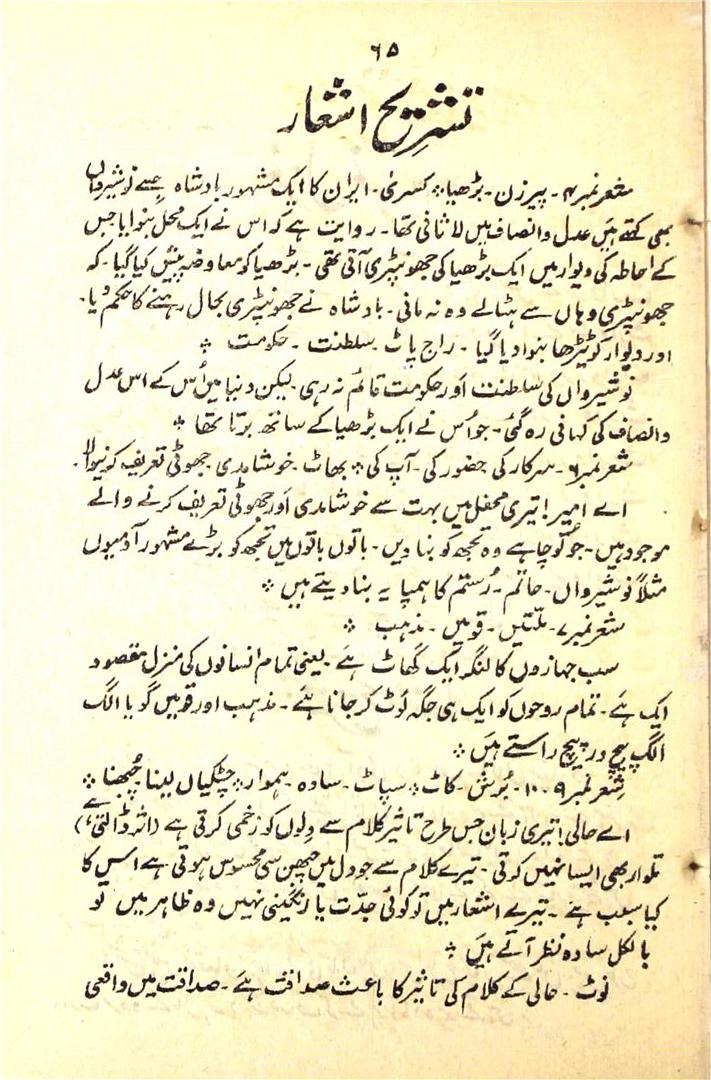 ۶۵
تشریح اشعار
شعر نمبر ۴۔ پیرزن۔ بڑھیا ؞ کسریٰ۔ ایران کا ایک مشہور بادشاہ جسے نوشیرواں
بھی کہتے ہیں عدل و انصاف میں لاثانی تھا۔ روایت ہے کہ اس نے ایک محل بنوایا جس
کے احاطہ کی دیوار میں ایک بڑھیا کی جھونپڑی آتی تھی۔ بڑھیا کو معاوضہ پیش کیا گیا۔ کہ
جھونپڑی وہاں سے ہٹالے وہ نہ مانی۔ بادشاہ نے جھونپڑی بحال رہنے کا حکم دیا۔
اور دیوار کو ٹیڑھا بنوا دیا گیا۔ راج پاٹ۔ سلطنت۔ حکومت ؞
نوشیرواں کی سلطنت اور حکومت قائم نہ رہی۔ لیکن دنیا میں اُس کے اس عدل
و انصاف کی کہانی رہ گئی۔ جو اُس نے ایک بڑھیا کے ساتھ برتا تھا ؞
شعر نمبر ۶۔ سرکار کی حضور کی۔ آپ کی ؞ بھاٹ۔ خوشامدی۔ جھوٹی تعریف کرنیوالا۔
اے امیر! تیری محفل میں بہت سے خوشامدی اور جھوٹی تعریف کرنے والے
موجود ہیں۔ جو تو چاہے وہ تجھ کو بنا دیں۔ باتوں باتوں میں تجھ کو بڑے مشہور آدمیوں
مثلاً نوشیرواں۔ حاتم۔ رُستم کا ہمپایہ بنا دیتے ہیں ؞
شعر نمبر ۷۔ ملّتیں۔ قومیں۔ مذہب ؞
سب جہازوں کا لنگر ایک گھاٹ ہے۔ یعنی تمام انسانوں کی منزل مقصود
ایک ہے۔ تمام روحوں کو ایک ہی جگہ لوٹ کر جانا ہے۔ مذہب اور قومیں گویا الگ
الگ پیچ در پیچ راستے ہیں ؞
شعر نمبر ۹۔۱۰۔ بُرش۔ کاٹ ؞ سپاٹ۔ سادہ۔ ہموار ؞ چٹکیاں لینا چُبھنا ؞
اے حالی! تیری زبان جس طرح تاثیر کلام سے دِلوں کو زخمی کرتی ہے (اثر ڈالتی ہے)
تلوار بھی ایسا نہیں کرتی۔ تیرے کلام سے جو دل میں چبھن سی محسوس ہوتی ہے اس کا
کیا سبب ہے۔ تیرے اشعار میں تو کوئی جدّت یا رنگینی نہیں وہ ظاہر میں تو
بالکل سادہ نظر آتے ہیں ؞
نوٹ۔ حالی کے کلام کی تاثیر کا باعث صداقت ہے۔ صداقت میں واقعی